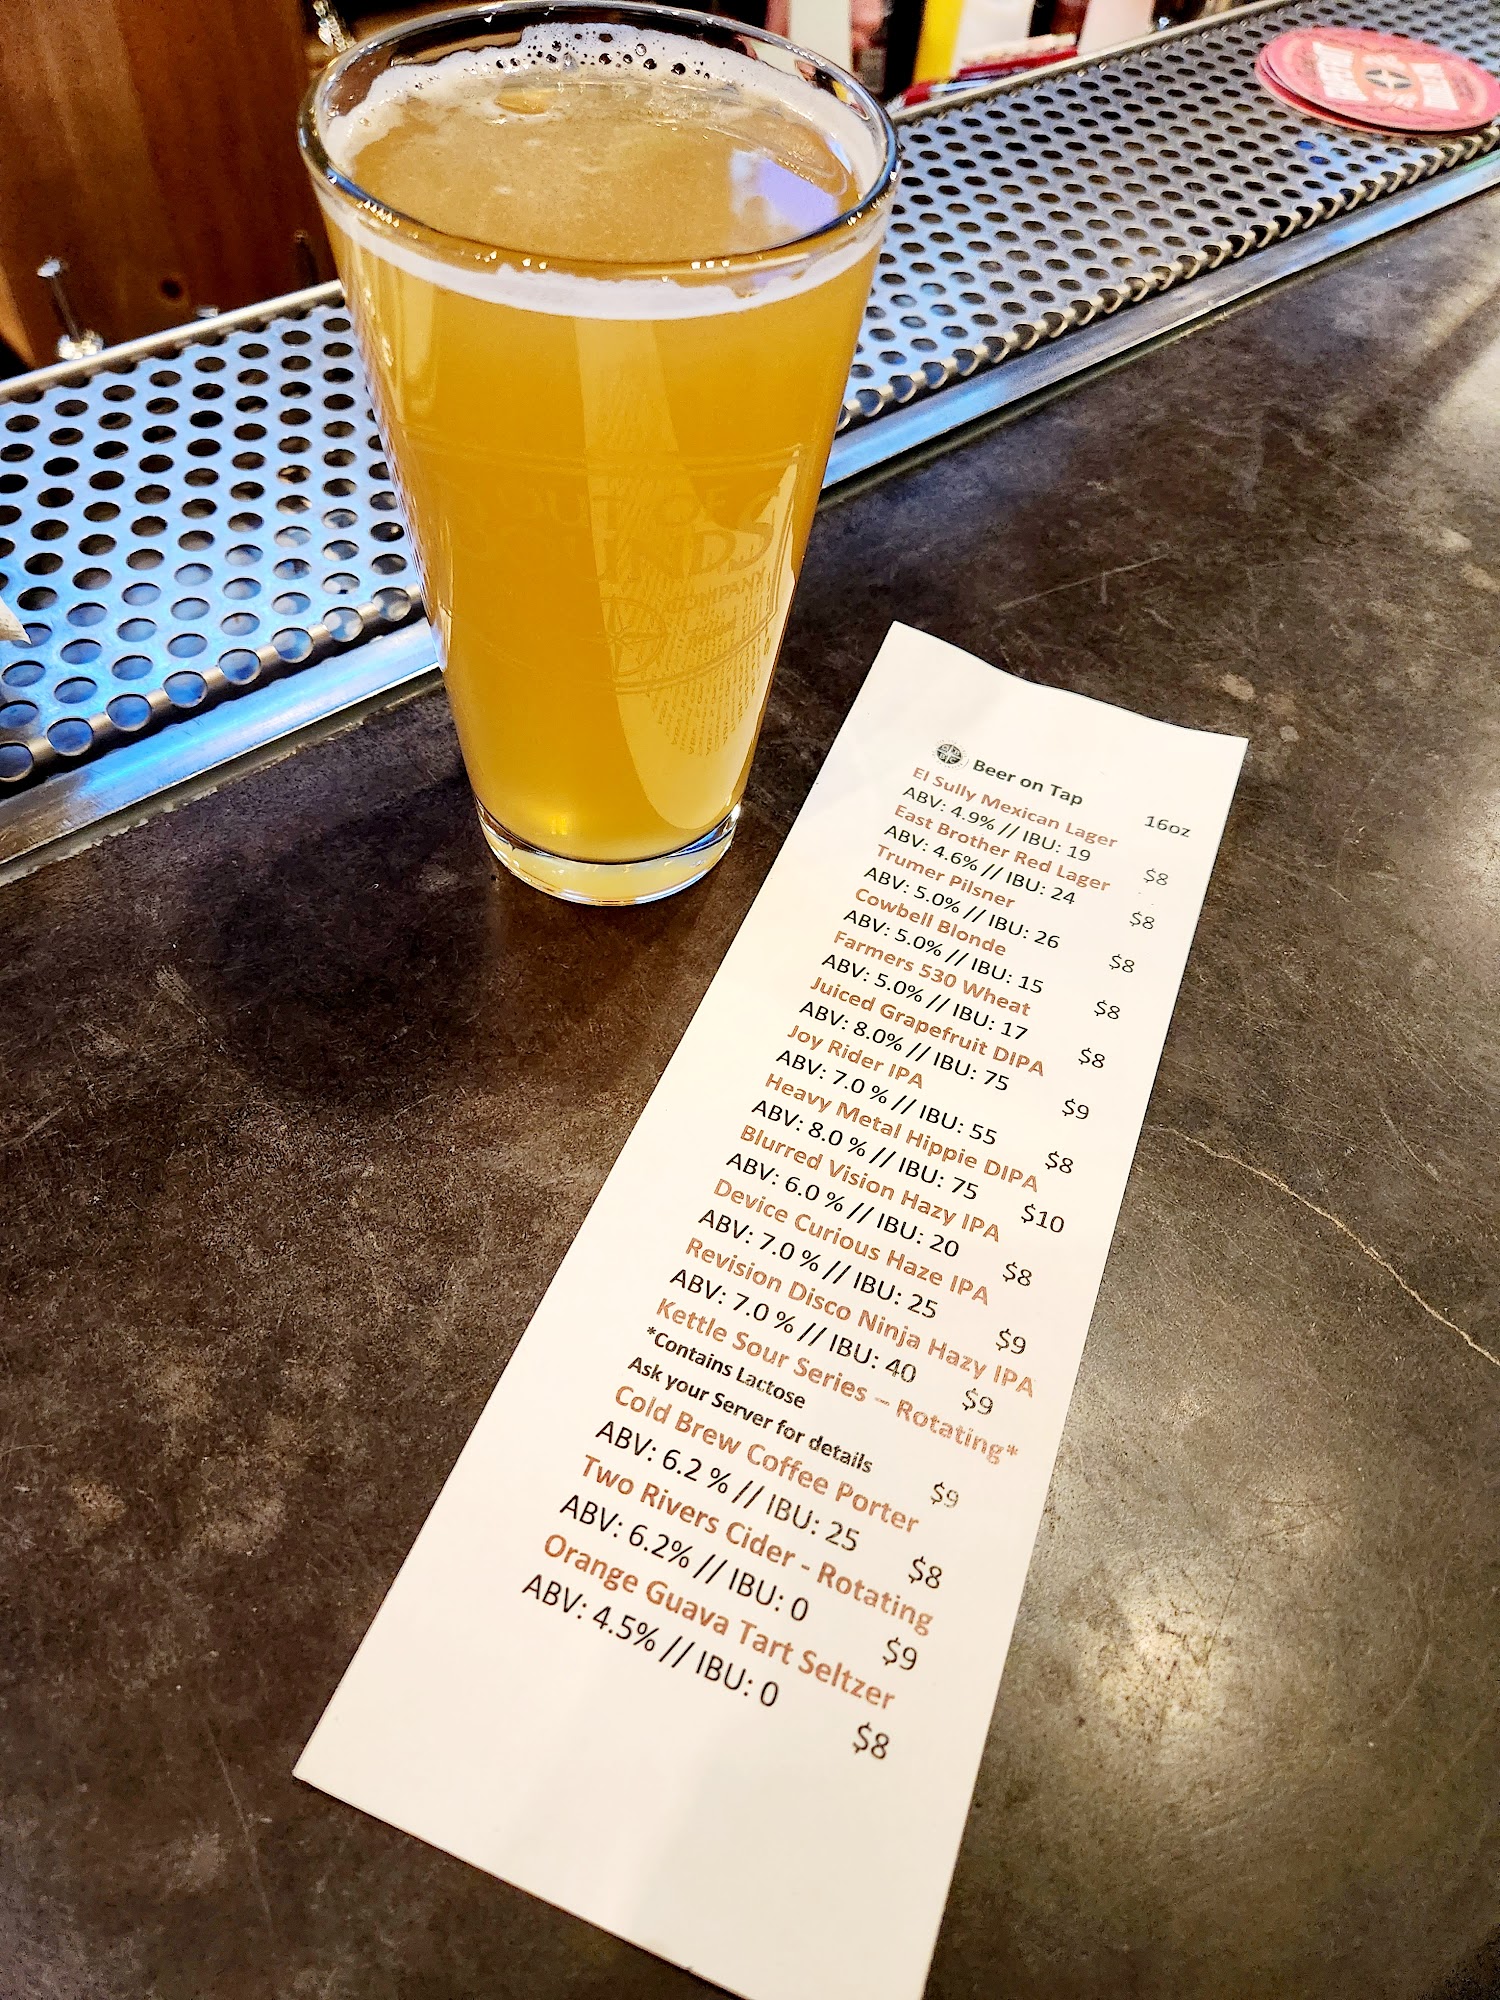 Beer on Tap
16oz
El Sully Mexican Lager
ABV: 4.9% // IBU: 19
$8
East Brother Red Lager
ABV: 4.6% // IBU: 24
$8
Trumer Pilsner
ABV: 5.0% // IBU: 26
$8
Cowbell Blonde
ABV: 5.0% // IBU: 15
$8
Farmers 530 Wheat
ABV: 5.0% // IBU: 17
$8
Juiced Grapefruit DIPA
ABV: 8.0% // IBU: 75
$9
Joy Rider IPA
ABV: 7.0 % // IBU: 55
$8
Heavy Metal Hippie DIPA
ABV: 8.0 % // IBU: 75
$10
Blurred Vision Hazy IPA
ABV: 6.0 % // IBU: 20
$8
Device Curious Haze IPA
ABV: 7.0 % // IBU: 25
$9
Revision Disco Ninja Hazy IPA
ABV: 7.0 % // IBU: 40
$9
Kettle Sour Series – Rotating*
*Contains Lactose
Ask your Server for details
$9
Cold Brew Coffee Porter
ABV: 6.2 % // IBU: 25
$8
Two Rivers Cider - Rotating
ABV: 6.2% // IBU: 0
$9
Orange Guava Tart Seltzer
ABV: 4.5% // IBU: 0
$8